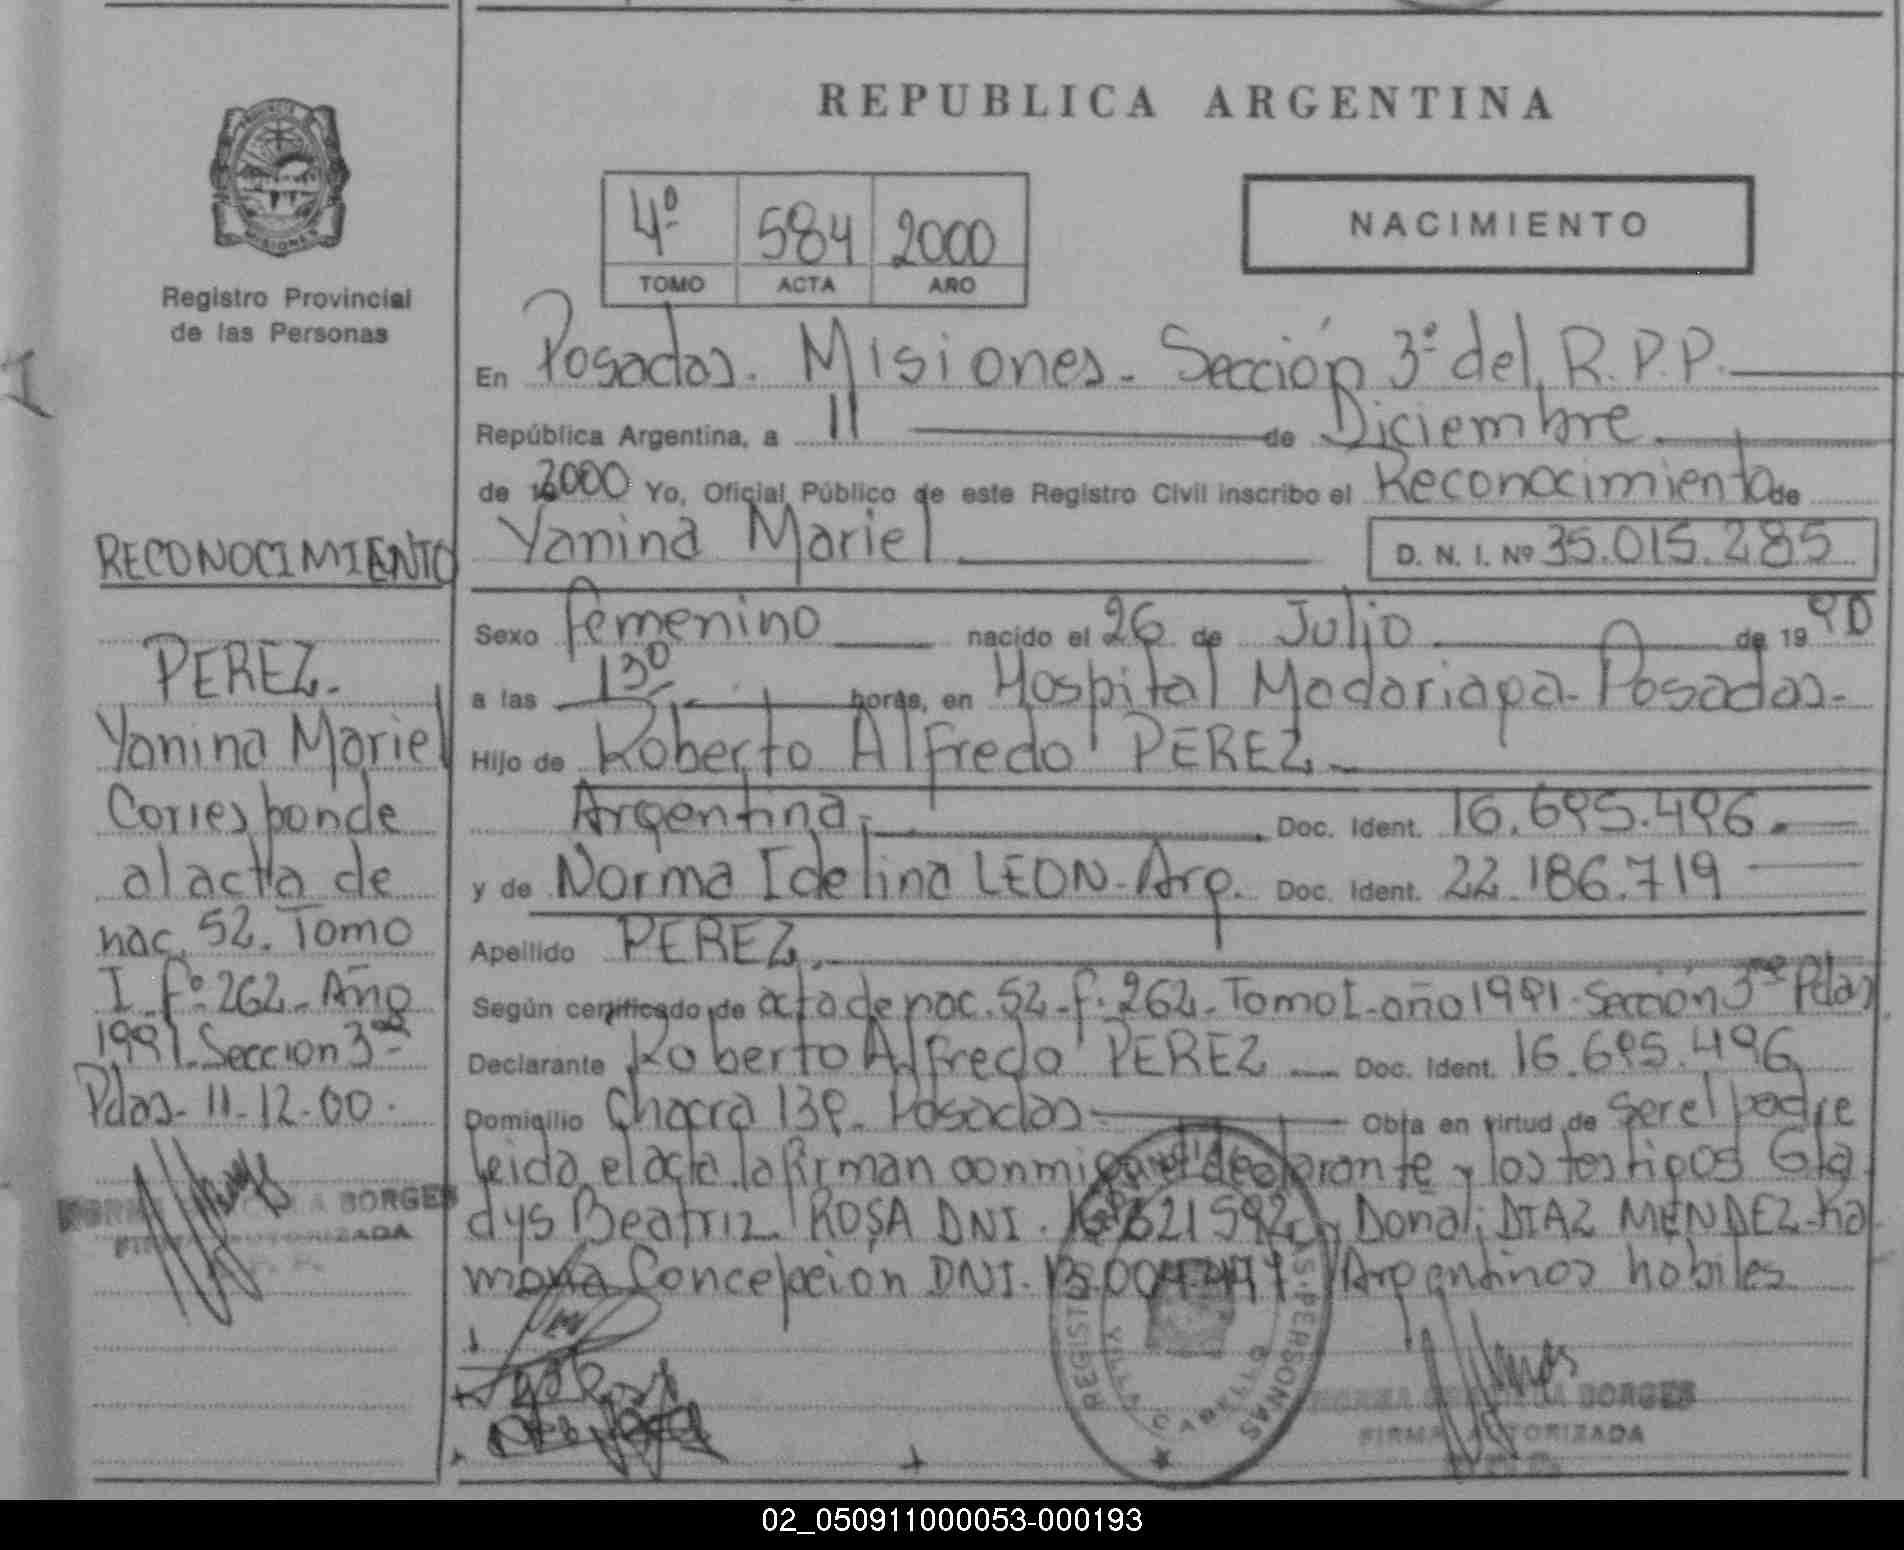 REPUBLICA ARGENTINA
4º 584 2000
TOMO ACTA AÑO
NACIMIENTO
MISIONES
Registro Provincial
de las Personas
En Posadas. Misiones. Sección 3ª del R.P.P.
República Argentina, a 11 de Diciembre
de 2000 Yo, Oficial Público de este Registro Civil inscribo el Reconocimiento de
Yanina Mariel D. N. I. Nº 35.015.285
Sexo femenino nacido el 26 de Julio de 1990
a las 13º horas, en Hospital Madariaga. Posadas.
Hijo de Roberto Alfredo PEREZ
Argentina. Doc. Ident. 16.695.496.
y de Norma Idelina LEON. Arg. Doc. Ident. 22.186.719
Apellido PEREZ.
Según certificado de acta de nac. 52. f. 262. Tomo I. año 1991. Sección 3ra Pdas
Declarante Roberto Alfredo PEREZ Doc. Ident. 16.695.496
Domicilio Chacra 139. Posadas Obra en virtud de ser el padre
leida el acta la firman conmigo el declarante y los testigos Gla
dys Beatriz ROSA DNI. y Doña: DIAZ MENDEZ Ra
mona Concepcion DNI. Argentinos habiles
RECONOCIMIENTO
PEREZ.
Yanina Mariel
Corresponde
al acta de
nac. 52. Tomo
I fº 262. Año
1991. Seccion 3ra
Pdas. 11-12-00.
NORMA BORGES
FIRMA AUTORIZADA
NORMA BORGES
FIRMA AUTORIZADA
02_050911000053-000193